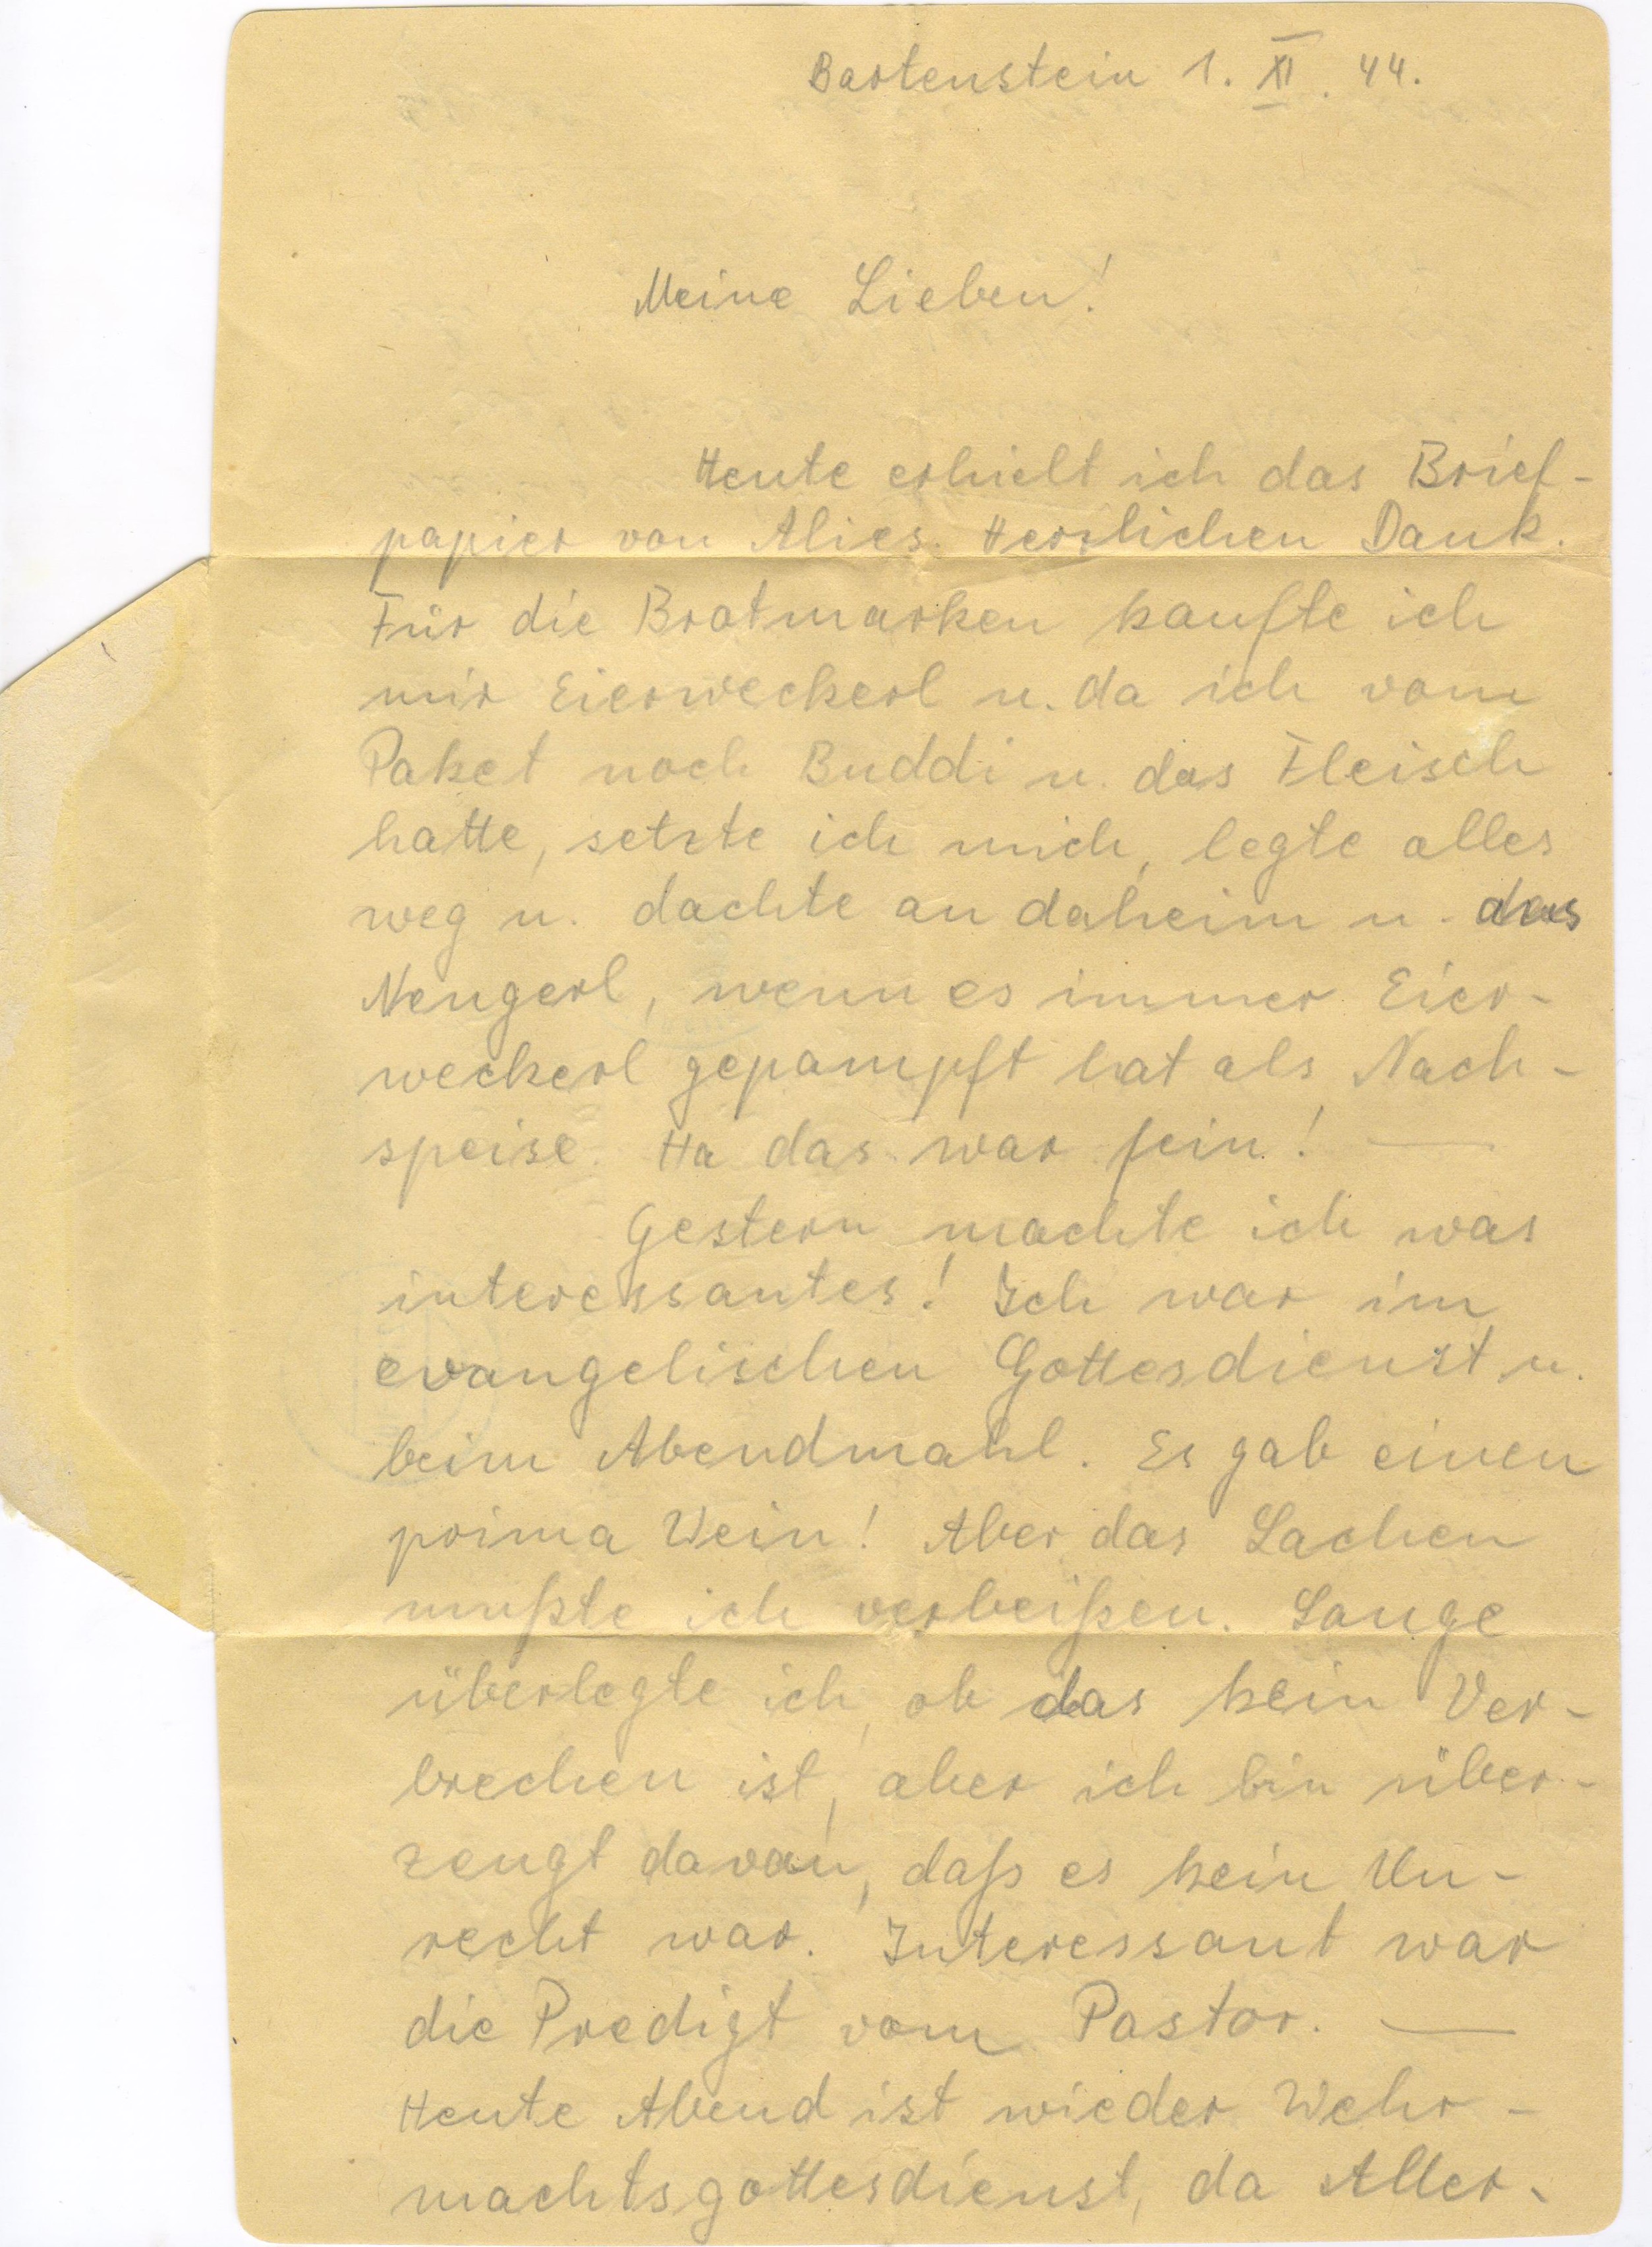 Bartenstein 1. XI. 44.
Meine Lieben!
Heute erhielt ich das Brief-
papier von Alies. Herzlichen Dank.
Für die Brotmarken kaufte ich
mir Eierweckerl u. da ich vom
Paket noch Buddi u. das Fleisch
hatte, setzte ich mich, legte alles
weg u. dachte an daheim u. das
Neugerl, wenn es immer Eier-
weckerl gepampft hat als Nach-
speise. Ha das war fein! —
Gestern machte ich was
interessantes! Ich war im
evangelischen Gottesdienst u.
beim Abendmahl. Es gab einen
prima Wein! Aber das Lachen
mußte ich verbeißen. Lange
überlegte ich, ob das kein Ver-
brechen ist, aber ich bin über-
zeugt davon, daß es kein Un-
recht war. Interessant war
die Predigt vom Pastor. —
Heute Abend ist wieder Wehr-
machtsgottesdienst, da Aller-